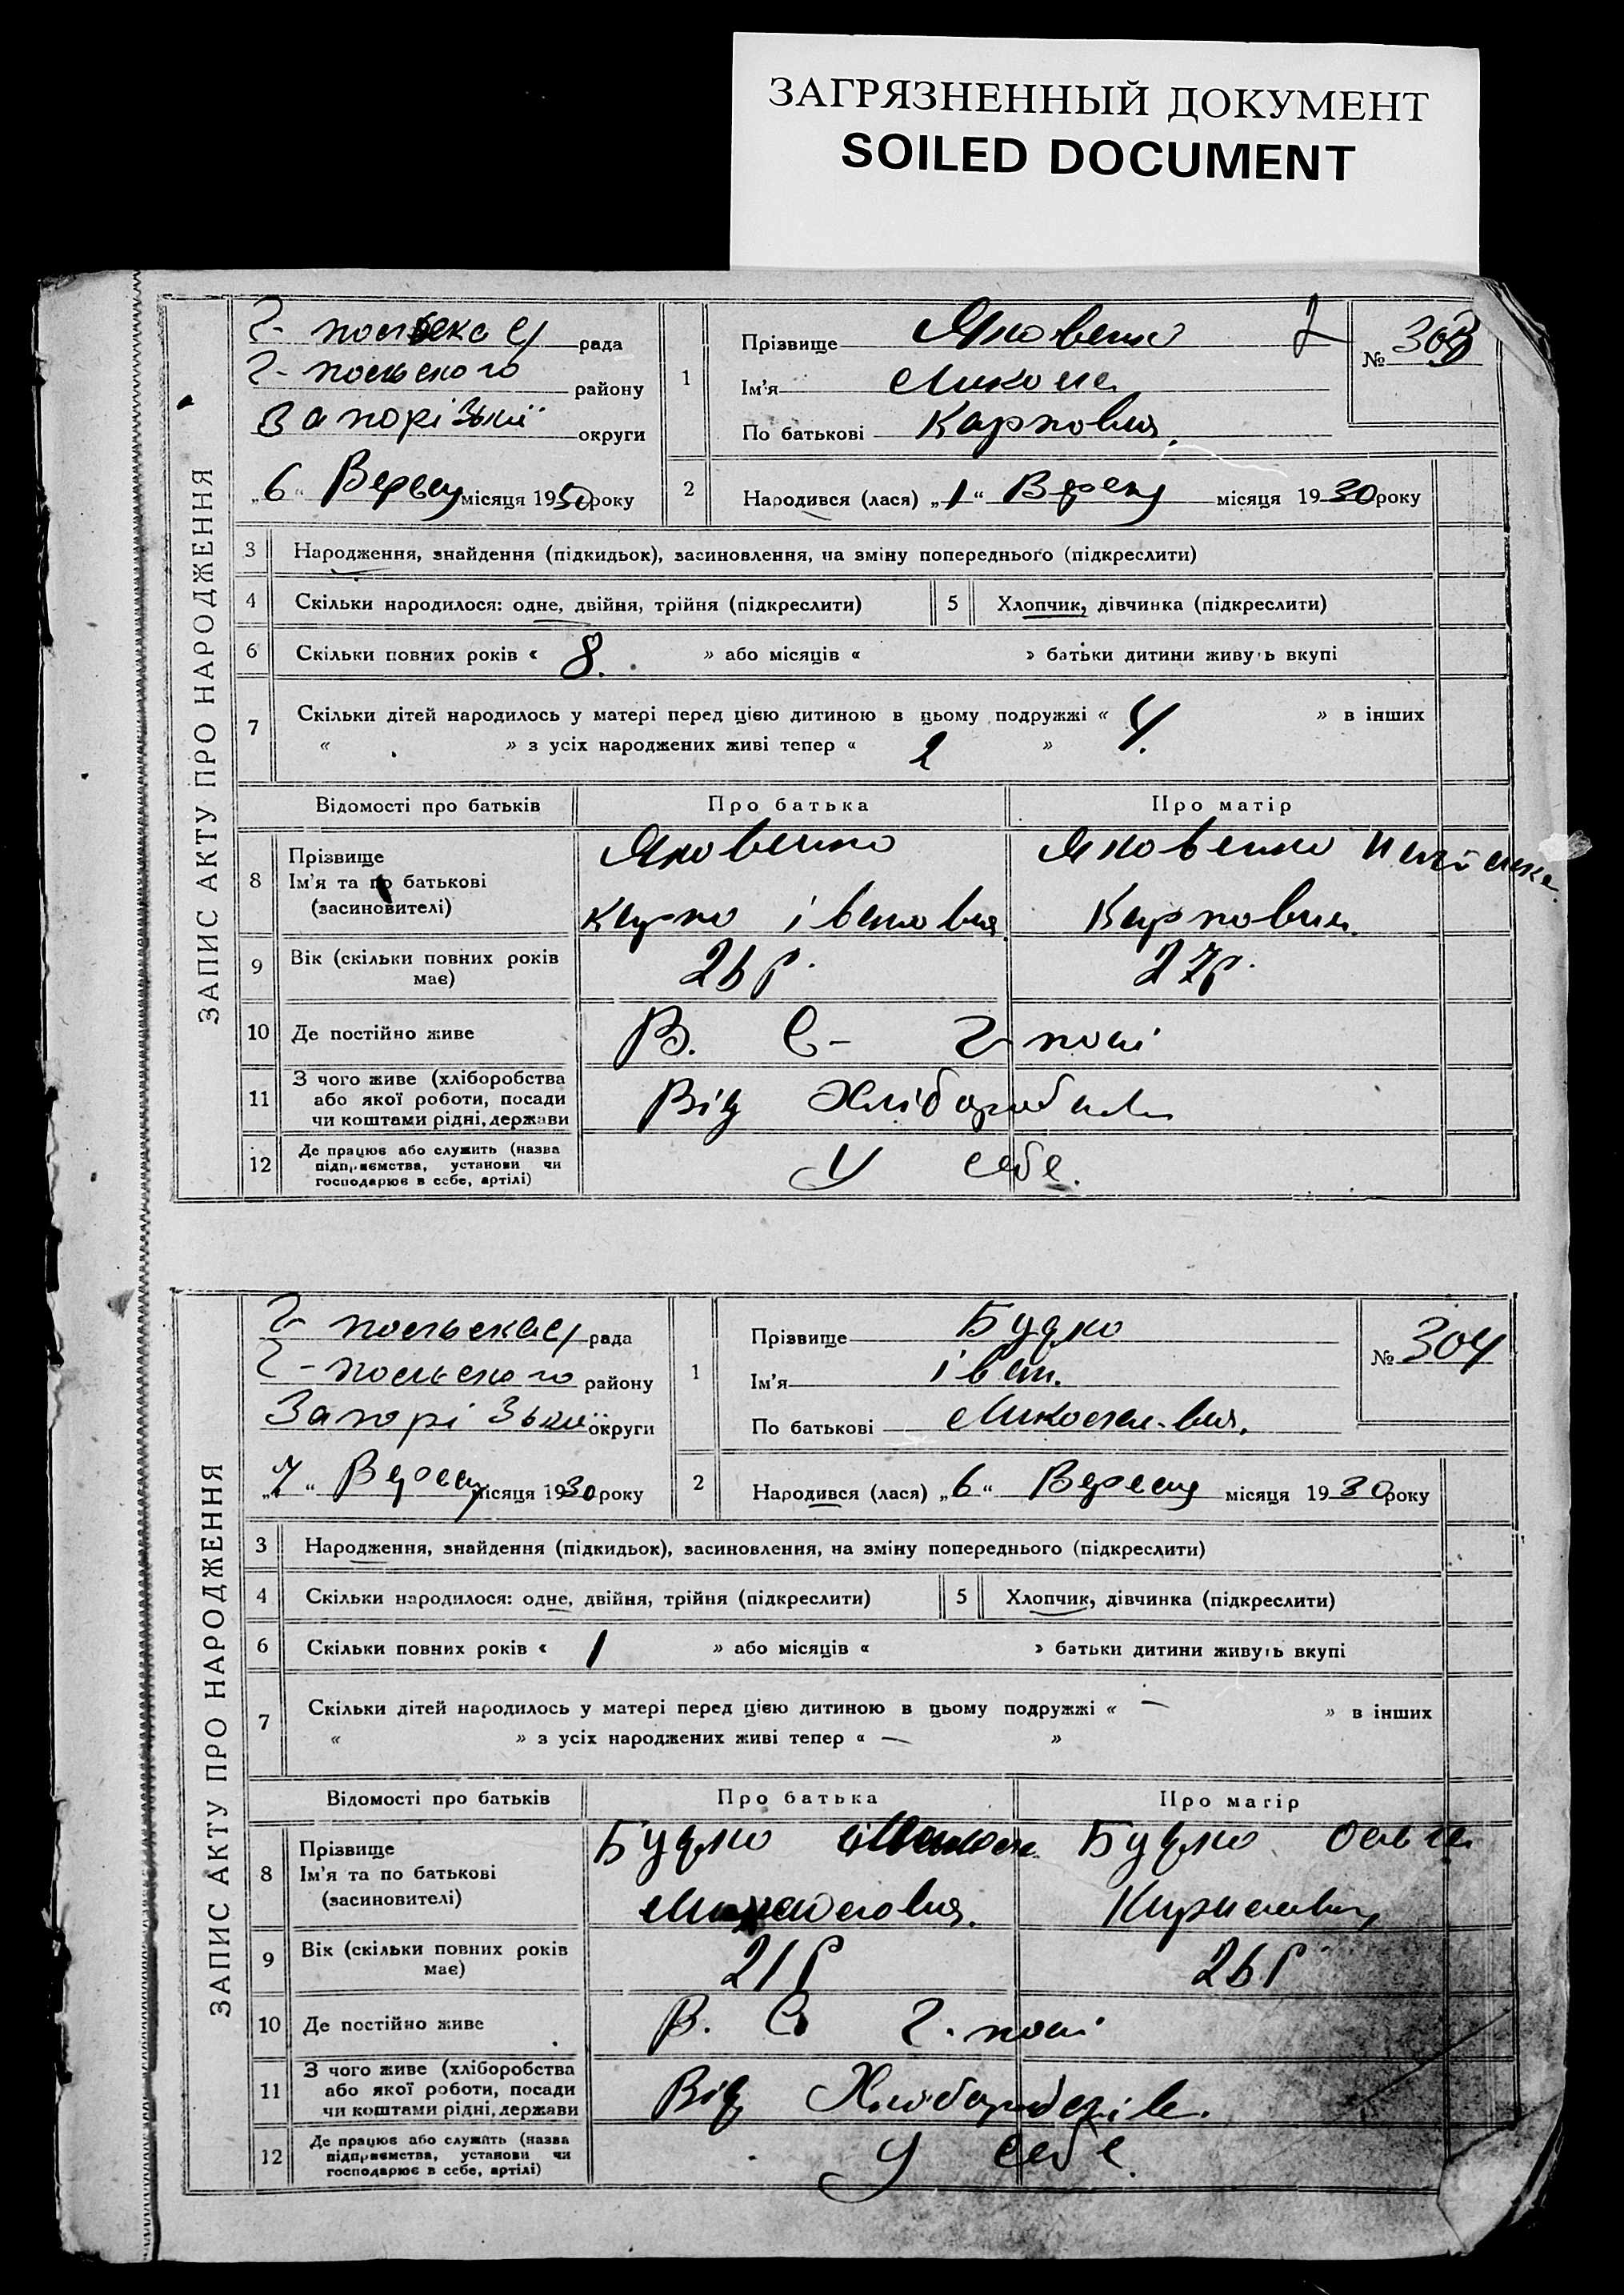 ЗАГРЯЗНЕННЫЙ ДОКУМЕНТ
SOILED DOCUMENT
ЗАПИС АКТУ ПРО НАРОДЖЕННЯ
Г- польська рада
Г- польского району
Запорізької округи
„6“ Вересня місяця 1930 року
1
Прізвище Яковенко
Ім'я Микола
По батькові Карпович.
№ 303
2
Народився (лася) „1“ Вересня місяця 1930 року
3 Народження, знайдення (підкидьок), засиновлення, на зміну попереднього (підкреслити)
4 Скільки народилося: одне, двійня, трійня (підкреслити) 5 Хлопчик, дівчинка (підкреслити)
6 Скільки повних років « 8. » або місяців « » батьки дитини живуть вкупі
7 Скільки дітей народилось у матері перед цією дитиною в цьому подружжі « 4. » в інших
« » з усіх народжених живі тепер « 2 »
Відомості про батьків Про батька Про матір
8 Прізвище
Ім'я та по батькові
(засиновителі)
Яковенко
Карпо Іванович
Яковенко
Карповна.
9 Вік (скільки повних років має) 26 р. 27 р.
10 Де постійно живе В. С- Г- полі
11 З чого живе (хліборобства
або якої роботи, посади
чи коштами рідні, держави
Від Хліборобства
12 Де працює або служить (назва
підприємства, установи чи
господарює в себе, артілі)
У себе.
ЗАПИС АКТУ ПРО НАРОДЖЕННЯ
Г- польська рада
Г- польского району
Запорізької округи
„7“ Вересня місяця 1930 року
1
Прізвище Будко
Ім'я Іван.
По батькові
№ 304
2
Народився (лася) „6“ Вересня місяця 1930 року
3 Народження, знайдення (підкидьок), засиновлення, на зміну попереднього (підкреслити)
4 Скільки народилося: одне, двійня, трійня (підкреслити) 5 Хлопчик, дівчинка (підкреслити)
6 Скільки повних років « 1 » або місяців « » батьки дитини живуть вкупі
7 Скільки дітей народилось у матері перед цією дитиною в цьому подружжі « — » в інших
« » з усіх народжених живі тепер « — »
Відомості про батьків Про батька Про матір
8 Прізвище
Ім'я та по батькові
(засиновителі)
Будко
Будко Ольга
Кириловна
9 Вік (скільки повних років має) 21 р 26 р
10 Де постійно живе В. С Г. полі
11 З чого живе (хліборобства
або якої роботи, посади
чи коштами рідні, держави
Від
12 Де працює або служить (назва
підприємства, установи чи
господарює в себе, артілі)
У себе.